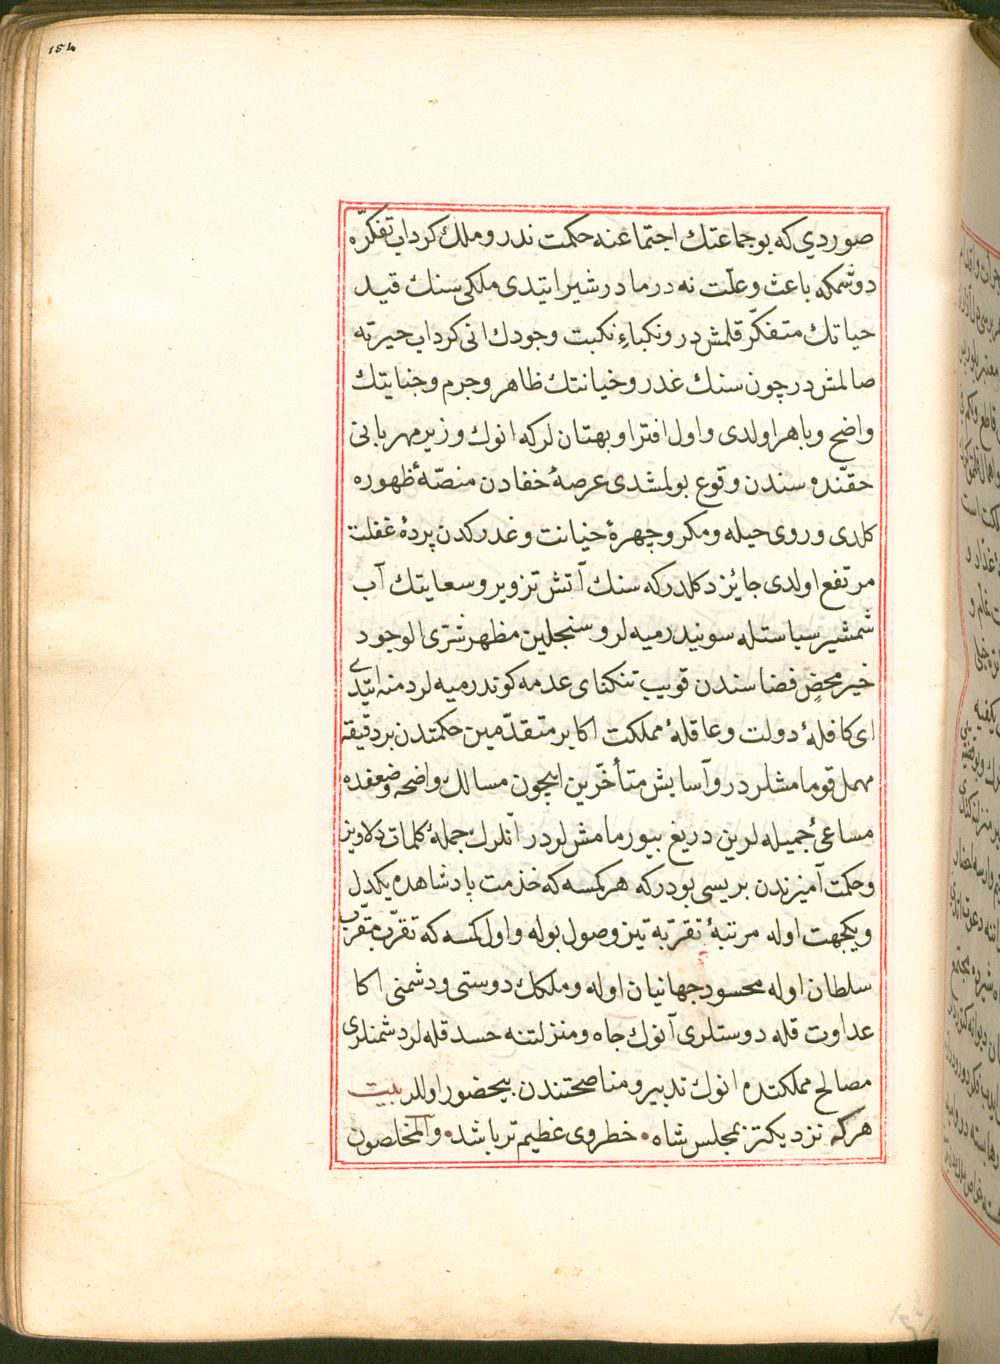 ١٥٤
صوردي كه بو جماعتك اجتماعنه حكمت ندر و ملك كرداب تفكّره
دوشمكه باعث و علّت نه در مادر شير ايتدى ملكى سنك قيد
حياتك متفكّر قلمش در و نكباءِ نكبت وجودك انى كرداب حيرته
صالمش در چون سنك غدر و خيانتك ظاهر و جرم و جنايتك
واضح و باهر اولدى و اول افترا و بهتان لر كه انوك وزير مهربانى
حقّنده سندن وقوع بولمشدى عرصهٔ خفادن منصّهٔ ظهوره
كلدى و روى حيله و مكر و چهرهٔ خيانت و غدركدن پردهٔ غفلت
مرتفع اولدى جايز دكلدر كه سنك آتش تزوير و سعايتك آب
شمشير سياستله سويندرميه لر و سنجلين مظهر شرّى الوجود
خير محضِ فضاسندن قويب تنكناى عدمه كوندرميه لر دمنه ايتدى
اى كافلهٔ دولت و عاقلهٔ مملكت اكابر متقدّمين حكمتدن بر دقيقه
مهمل قومامشلردر و آسايش متأخّرين ايچون مسالك واضحه وضعفده
مساعئ جميله لرين دريغ بيورمامش لردر آنلرك جملهٔ كلمات دلاويز
و حكمت آميزندن بريسى بودر كه هر كمسه كه خذمت پادشاهده يكدل
و يكجهت اوله مرتبهٔ تقرّبه تيز وصول بوله و اول كمسه كه تقرّبله مقرّب
سلطان اوله محسودِ جهانيان اوله و ملكك دوستى و دشمنى اكا
عداوت قله دوستلرى آنوك جاه و منزلتنه حسد قله لر دشمنلرى
مصالح مملكتده انوك تدبير و مناصحتندن بيحضور اوللر بيت
هركه نزديكتر بمجلس شاه • خطر وى عظيم تر باشد • و المخلصون